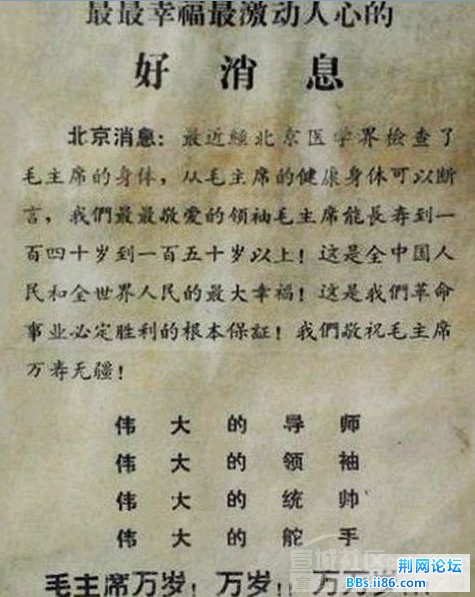 最最幸福最激动人心的
好消息
北京消息：最近經北京医学界檢查了
毛主席的身体，从毛主席的健康身体可以断
言，我們最最敬爱的領袖毛主席能長寿到一
百四十岁到一百五十岁以上！这是全中国人
民和全世界人民的最大幸福！这是我們革命
事业必定胜利的根本保証！我們敬祝毛主席
万寿无疆！
伟大的导师
伟大的领袖
伟大的统帅
伟大的舵手
毛主席万岁！万岁！万万岁
宣城社区
荆网论坛
BBs.ii86.com